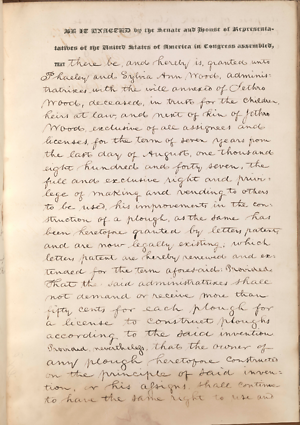 BE IT ENACTED by the Senate and House of Representa-
tatives of the United States of America in Congress assembled,
THAT there be, and hereby is, granted unto
Phaeby and Sylvia Ann Wood, adminis-
tratrixes, with the will annexed of Jethro
Wood, deceased, in trust for the children
heirs at law, and next of kin of Jethro
Wood, exclusive of all assignees and
licenses for the term of seven years from
the last day of August, one thousand
eight hundred and forty seven, the
full and exclusive right and privi-
lege of making and vending to others
to be used, his improvements in the con-
struction of a plough, as the same has
been heretofore granted by letters patent,
and are now legally existing, which
letters patent are hereby renewed and ex-
tended for the term aforesaid: Provided
That the said administratrixes shall
not demand or receive more than
fifty cents for each plough for
a license to construct ploughs
according to the said invention
Provided, nevertheless, that the owner of
any plough heretofore constructed
on the principle of said inven-
tion, or his assigns, shall continue
to have the same right to use and